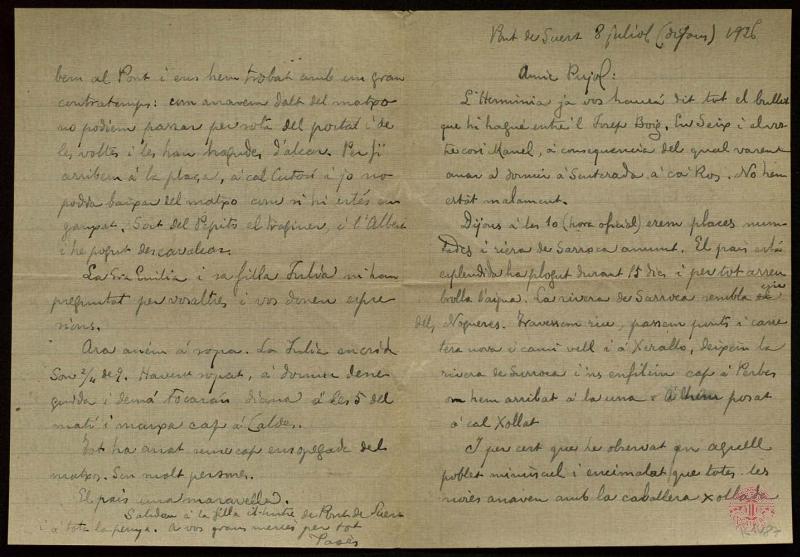 Pont de Suert 8 juliol (dijous) 1926
Amic Pujol:
L'Herminia ja vos haurá dit tot el bullit
que hi hagué entre'l Josep Boig, En Seix i el vos
tre cosí Manel, á consequencia del qual varem
anar á dormir á Senterada, á ca'l Ros. No hem
estát malament.
Dijous á les 10 (hora oficial) erem places mun
tades i riera de Sarroca amunt. El pais está
esplendid, ha plogut durant 15 dies i per tot arreu
brolla d'aigua. La rivera de Sarroca sembla
dels Nogueres. Travessem riu, passem punts i carre
tera nova i camí vell i á Xerallo, deixem la
rivera de Sarroca i ns enfilem cap á Perbes
on hem arribat á la una á hem posat
á cal Xollat
I per cert que he observat qu aquell
poblet minúscul i encimalat que totes les
noies anaven amb la cabellera xollada
bem al Pont i ens hem trobat amb un gran
contratemps: com anavem dalt del matxo
no podiem passar per sota del portal i de
les voltes i les han hagudes d'alçar. Per fi
arribem á la plaça, á cal Cutosí i jo no
podia baixar del matxo com si hi estés en
ganxat. Sort del Pepito el traginer, i l'Albert
i he pogut descavalcar.
La Sra Emilia i sa filla Julia m'han
preguntat per vosaltres i vos donen expre
sions.
Ara aném á sopar. La Julia ens crida
Son 2/4 de 9. Havent sopat, á dormir dese
guida i demá tocarán diana á les 5 del
matí i marxa cap á Caldes.
Tot ha anat sense cap ensopegada del
matxos. Son molt persones.
El país una maravella.
Saludeu á la filla de Pont de Suert
á tota la penya. A vos grans mercès per tot
Pagès